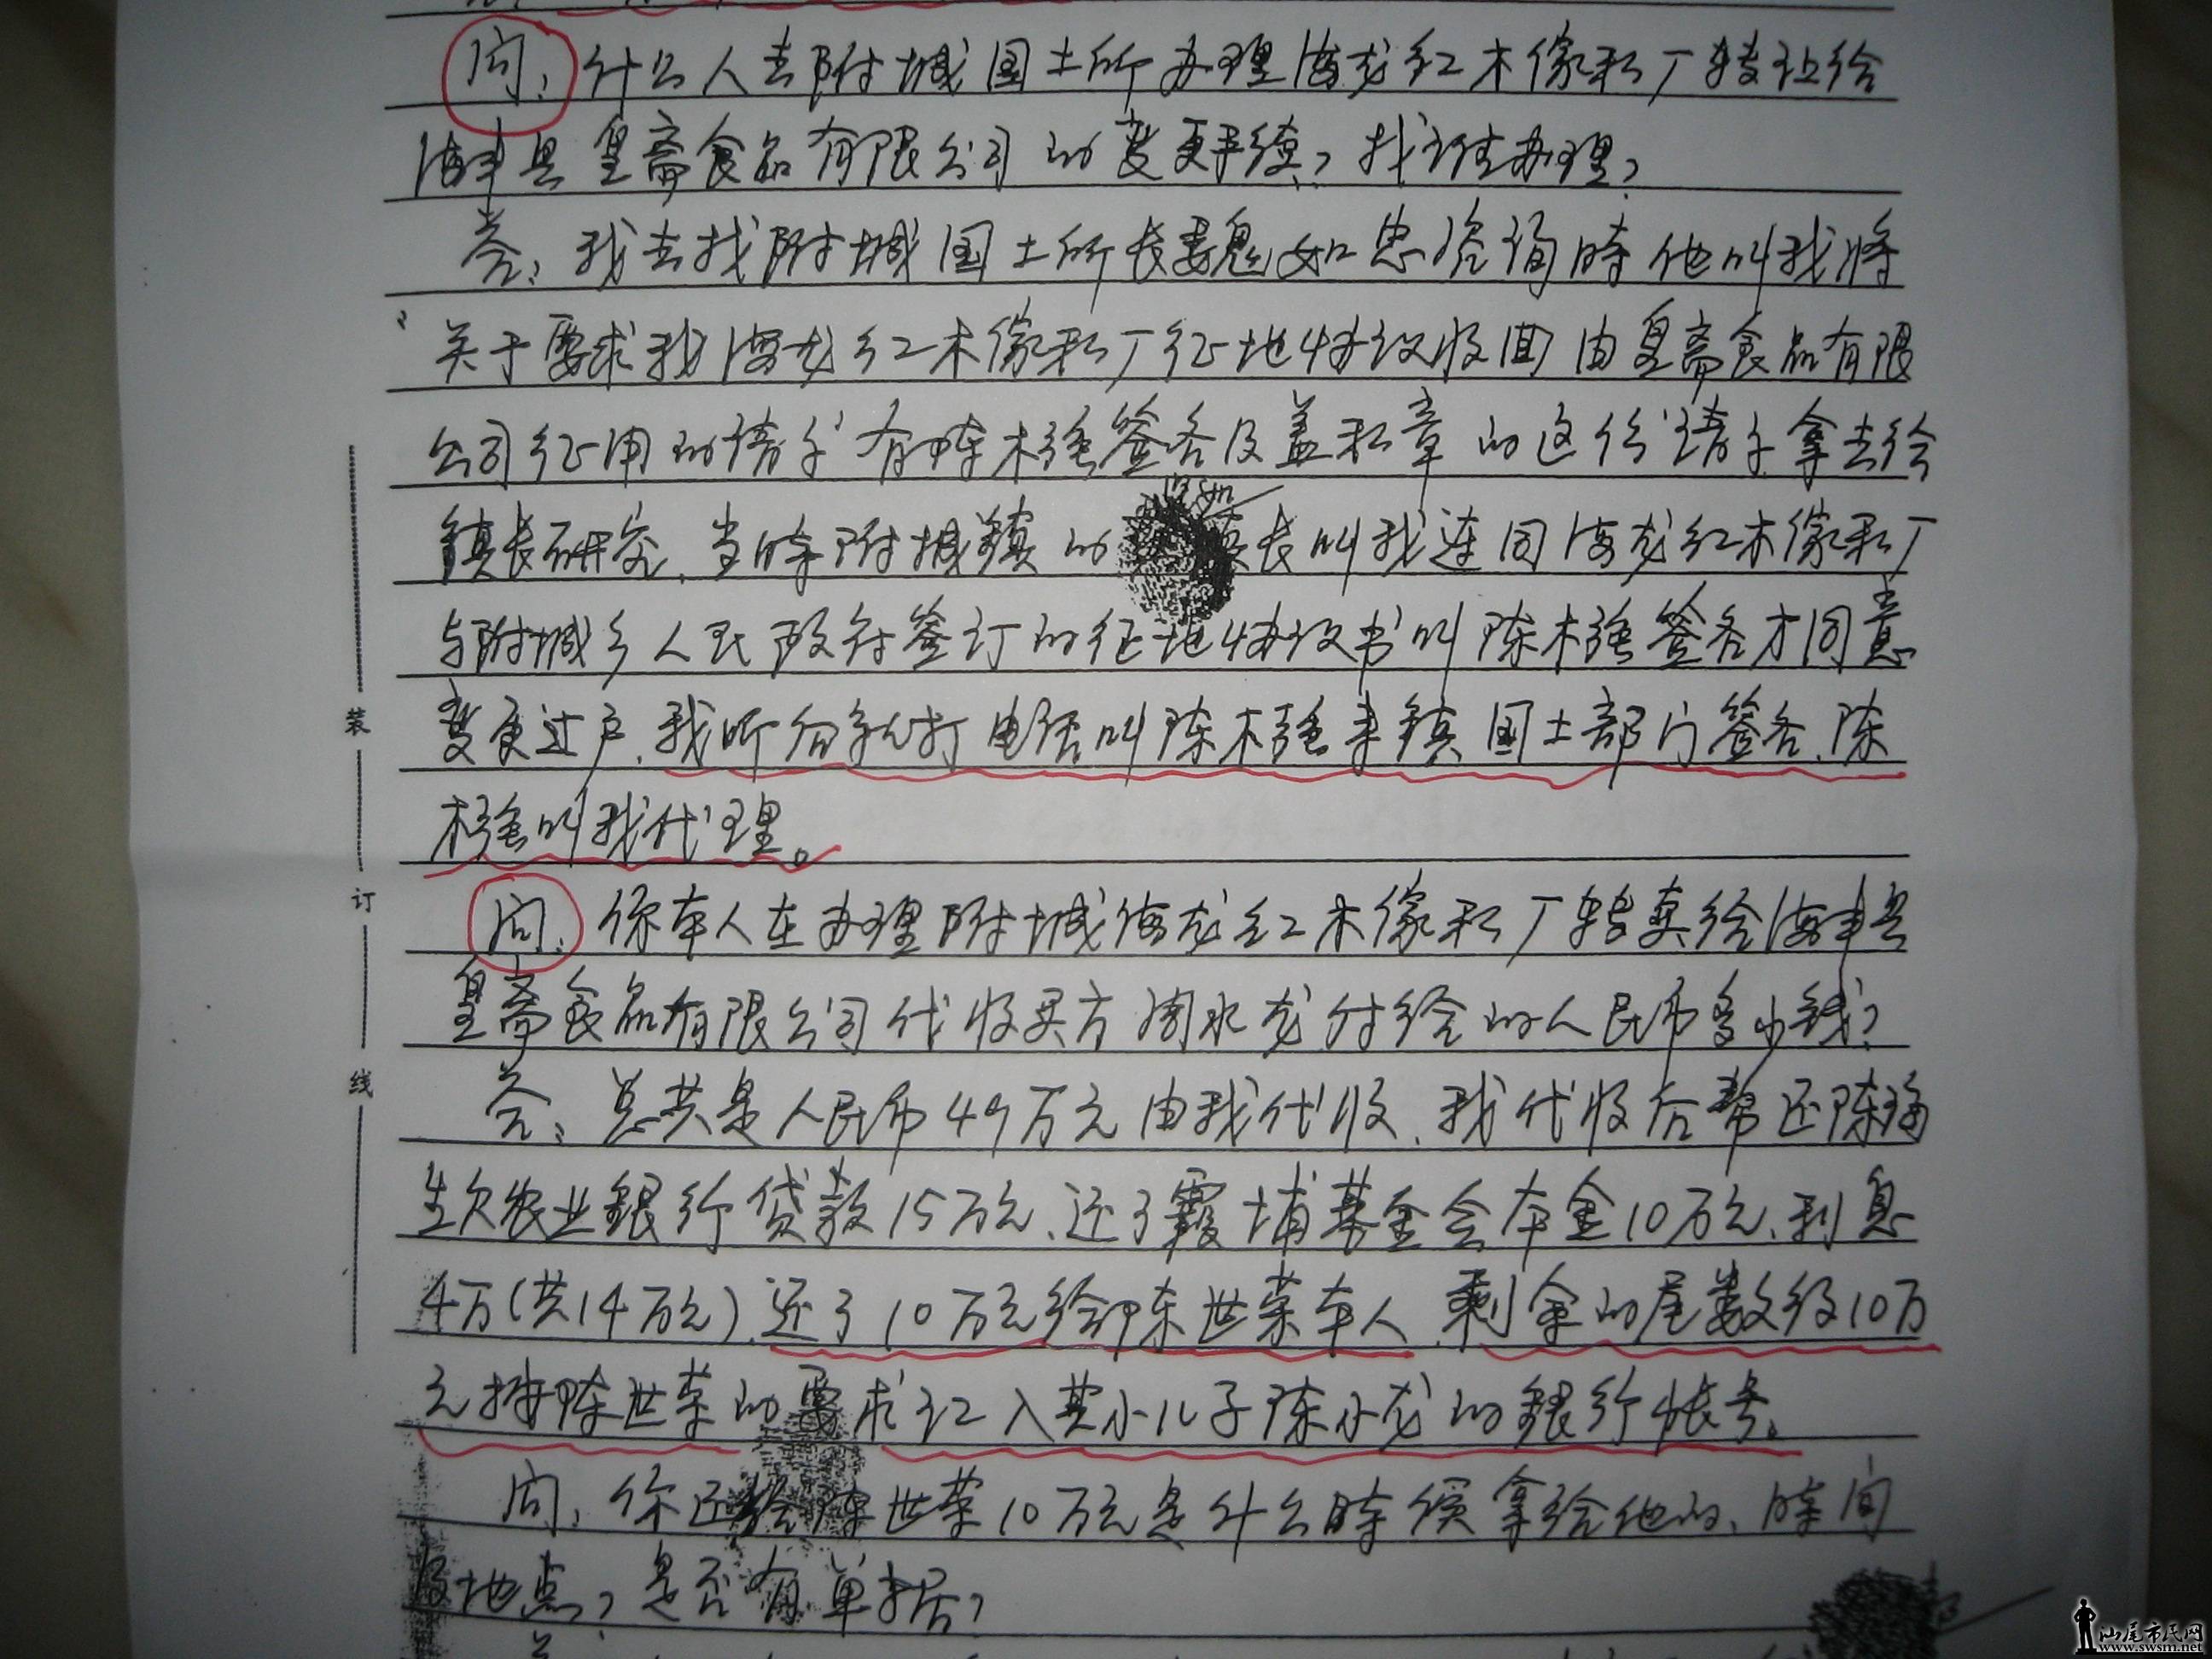 问：什么人去附城国土所办理海龙红木傢私厂转让给
海丰县皇斋食品有限公司的变更手续？找谁办理？
答：我去找附城国土所长魏如忠咨询时他叫我将
关于要求我海龙红木傢私厂征地协议收回由皇斋食品有限
公司征用的请示有陈木强签名及盖私章的这份请示拿去给
镇长研究，当时附城镇的镇长叫我连同海龙红木傢私厂
与附城乡人民政府签订的征地协议书叫陈木强签名才同意
变更过户，我听后就打电话叫陈木强来镇国土部门签名，陈
木强叫我代理。
问：你本人在办理附城海龙红木傢私厂转卖给海丰县
皇斋食品有限公司代收买方周水龙付给的人民币多少钱？
答：总共是人民币49万元由我代收，我代收后帮还陈瑞
生欠农业銀行贷款15万元，还了霞埔基金会本金10万元，利息
4万（共14万元），还了10万元给陈世荣本人，剩余的尾数约10万
元按陈世荣的要求汇入其小儿子陈小龙的銀行帐号。
问：你还给陈世荣10万元是什么時候拿给他的，時间
及地点？是否有单据？
装
订
线
汕尾市民网
www.swsm.net